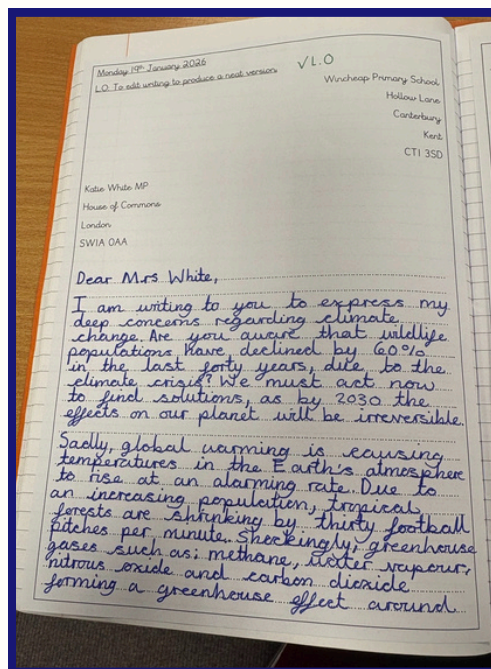 Monday 19th January 2026
L.O. To edit writing to produce a neat version.
VL.O
Wincheap Primary School
Hollow Lane
Canterbury
Kent
CT1 3SD
Katie White MP
House of Commons
London
SW1A 0AA
Dear Mrs White,
I am writing to you to express my
deep concerns regarding climate
change. Are you aware that wildlife
populations have declined by 60%
in the last forty years, due to the
climate crisis? We must act now
to find solutions, as by 2030 the
effects on our planet will be irreversible.
Sadly, global warming is causing
temperatures in the Earth's atmosphere
to rise at an alarming rate. Due to
an increasing population, tropical
forests are shrinking by thirty football
pitches per minute. Shockingly, greenhouse
gases such as: methane, water vapour,
nitrous oxide and carbon dioxide
forming a greenhouse effect around